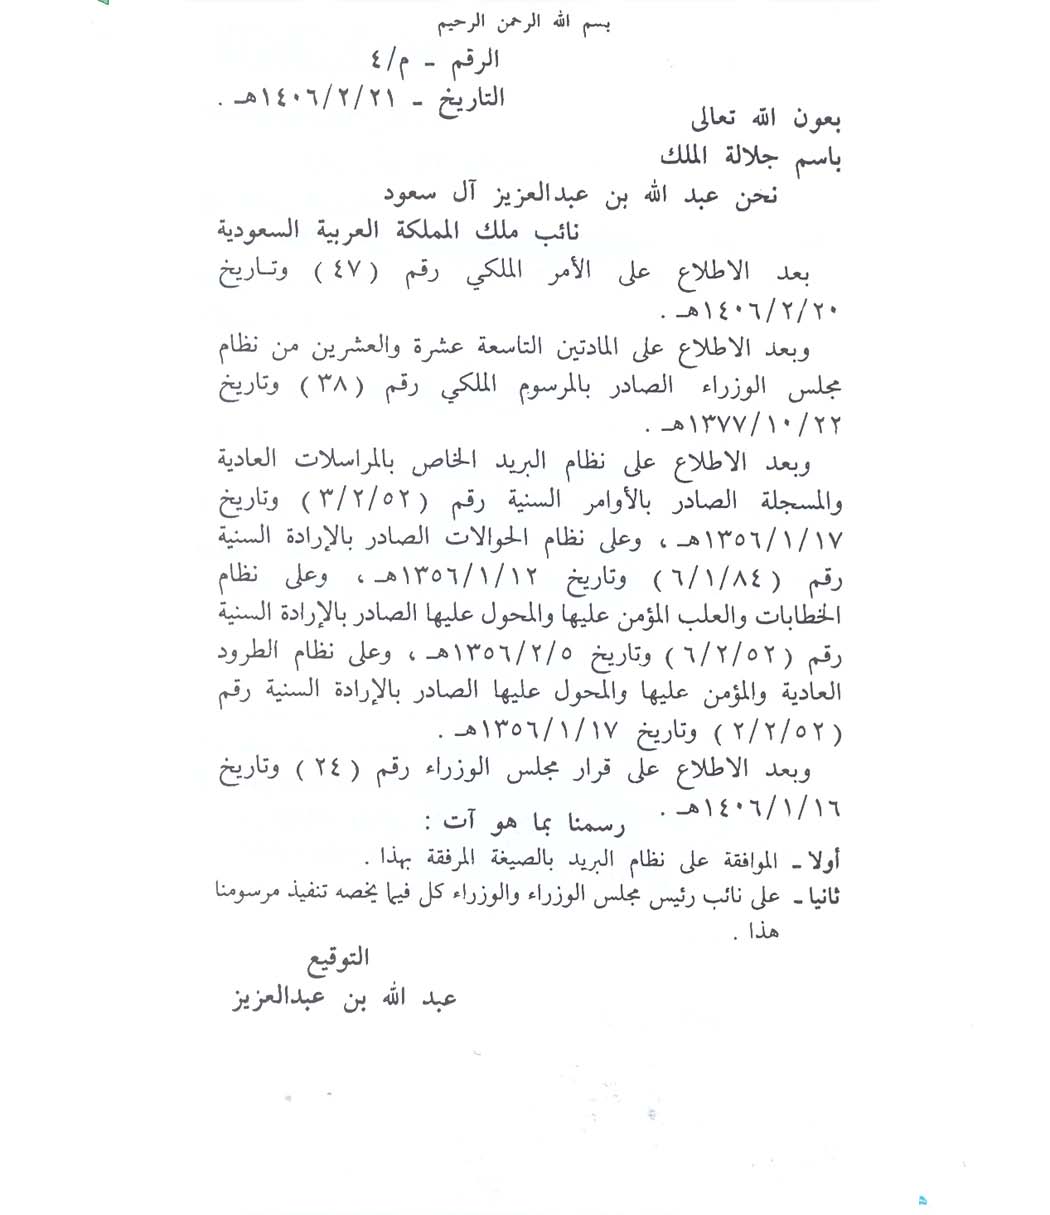 بسم الله الرحمن الرحيم
الرقم - م/٤
التاريخ - ١٤٠٦/٢/٢١هـ .
بعون الله تعالى
باسم جلالة الملك
نحن عبد الله بن عبدالعزيز آل سعود
نائب ملك المملكة العربية السعودية
بعد الاطلاع على الأمر الملكي رقم (٤٧) وتاريخ
١٤٠٦/٢/٢٠هـ .
وبعد الاطلاع على المادتين التاسعة عشرة والعشرين من نظام
مجلس الوزراء الصادر بالمرسوم الملكي رقم (٣٨) وتاريخ
١٣٧٧/١٠/٢٢هـ .
وبعد الاطلاع على نظام البريد الخاص بالمراسلات العادية
والمسجلة الصادر بالأوامر السنية رقم (٣/٢/٥٢) وتاريخ
١٣٥٦/١/١٧هـ ، وعلى نظام الحوالات الصادر بالإرادة السنية
رقم (٦/١/٨٤) وتاريخ ١٣٥٦/١/١٢هـ ، وعلى نظام
الخطابات والعلب المؤمن عليها والمحول عليها الصادر بالإرادة السنية
رقم (٦/٢/٥٢) وتاريخ ١٣٥٦/٢/٥هـ ، وعلى نظام الطرود
العادية والمؤمن عليها والمحول عليها الصادر بالإرادة السنية رقم
(٢/٢/٥٢) وتاريخ ١٣٥٦/١/١٧هـ .
وبعد الاطلاع على قرار مجلس الوزراء رقم (٢٤) وتاريخ
١٤٠٦/١/١٦هـ .
رسمنا بما هو آت :
أولا - الموافقة على نظام البريد بالصيغة المرفقة بهذا .
ثانيا - على نائب رئيس مجلس الوزراء والوزراء كل فيما يخصه تنفيذ مرسومنا
هذا .
التوقيع
عبد الله بن عبدالعزيز